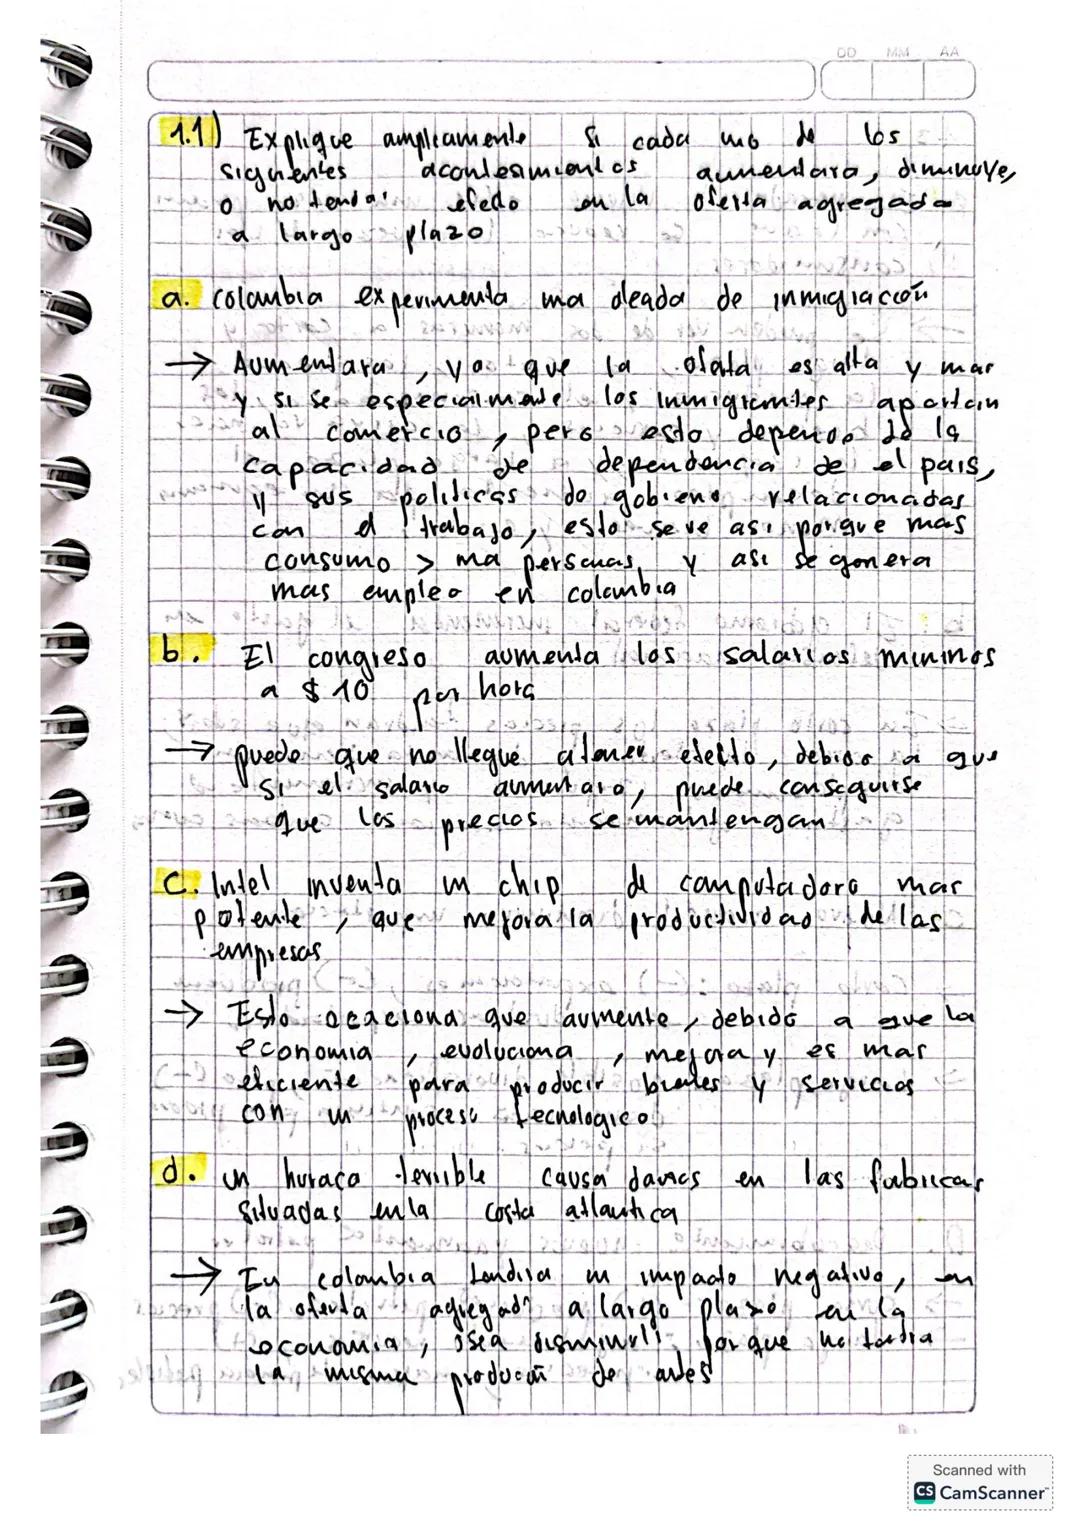 DD MM AA
1.1) Explique ampleamente si cada uno de los
siguientes acontesimientos aumentara, diminuye,
o no tendra efecto en la oferta agregada
a largo plazo
a. colombia experimenta una oleada de inmigración
→ Aumentara, ya que la es alta y mas
y si se especialmente los inmigrantes aportan
al comercio, pero esto depende de la
capacidad de dependencia de el pais,
y sus politicas de gobierno relacionadas
con el trabajo, esto se ve asi porque mas
consumo > ma personas, y asi se genera
mas empleo en colombia
b. El congreso aumenta los salarios mininos
a $10 por hora
→ puede que no llegue a tener efecto, debido a que
si el salario aumentara, puede conseguirse
que los precios se mantengan
c. Intel inventa un chip de computadora mas
potente, que mejora la productividad de las
empresas
→ Esto ocaciona que aumente, debido a que la
economia, evoluciona, mejora y es mas
eficiente para producir bienes y servicios
con un proceso tecnologico
d. un huraca terrible causa danos en las fabricas
situadas en la costa atlantica
→ En colombia tendria un impacto negativo, en
la oferta agregada a largo plazo en la
economia, osea disminuli porque no tendia
la misma producion de antes
Scanned with
CS CamScanner